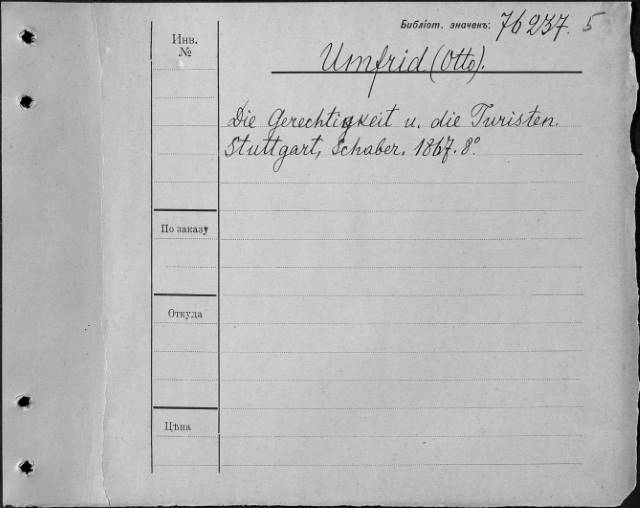 Библіот. значекъ: 76237. 5
Инв. №
Umfrid (Otto).
Die Gerechtigkeit u. die Turisten.
Stuttgart, Schaber. 1867. 8°
По заказу
Откуда
Цѣна